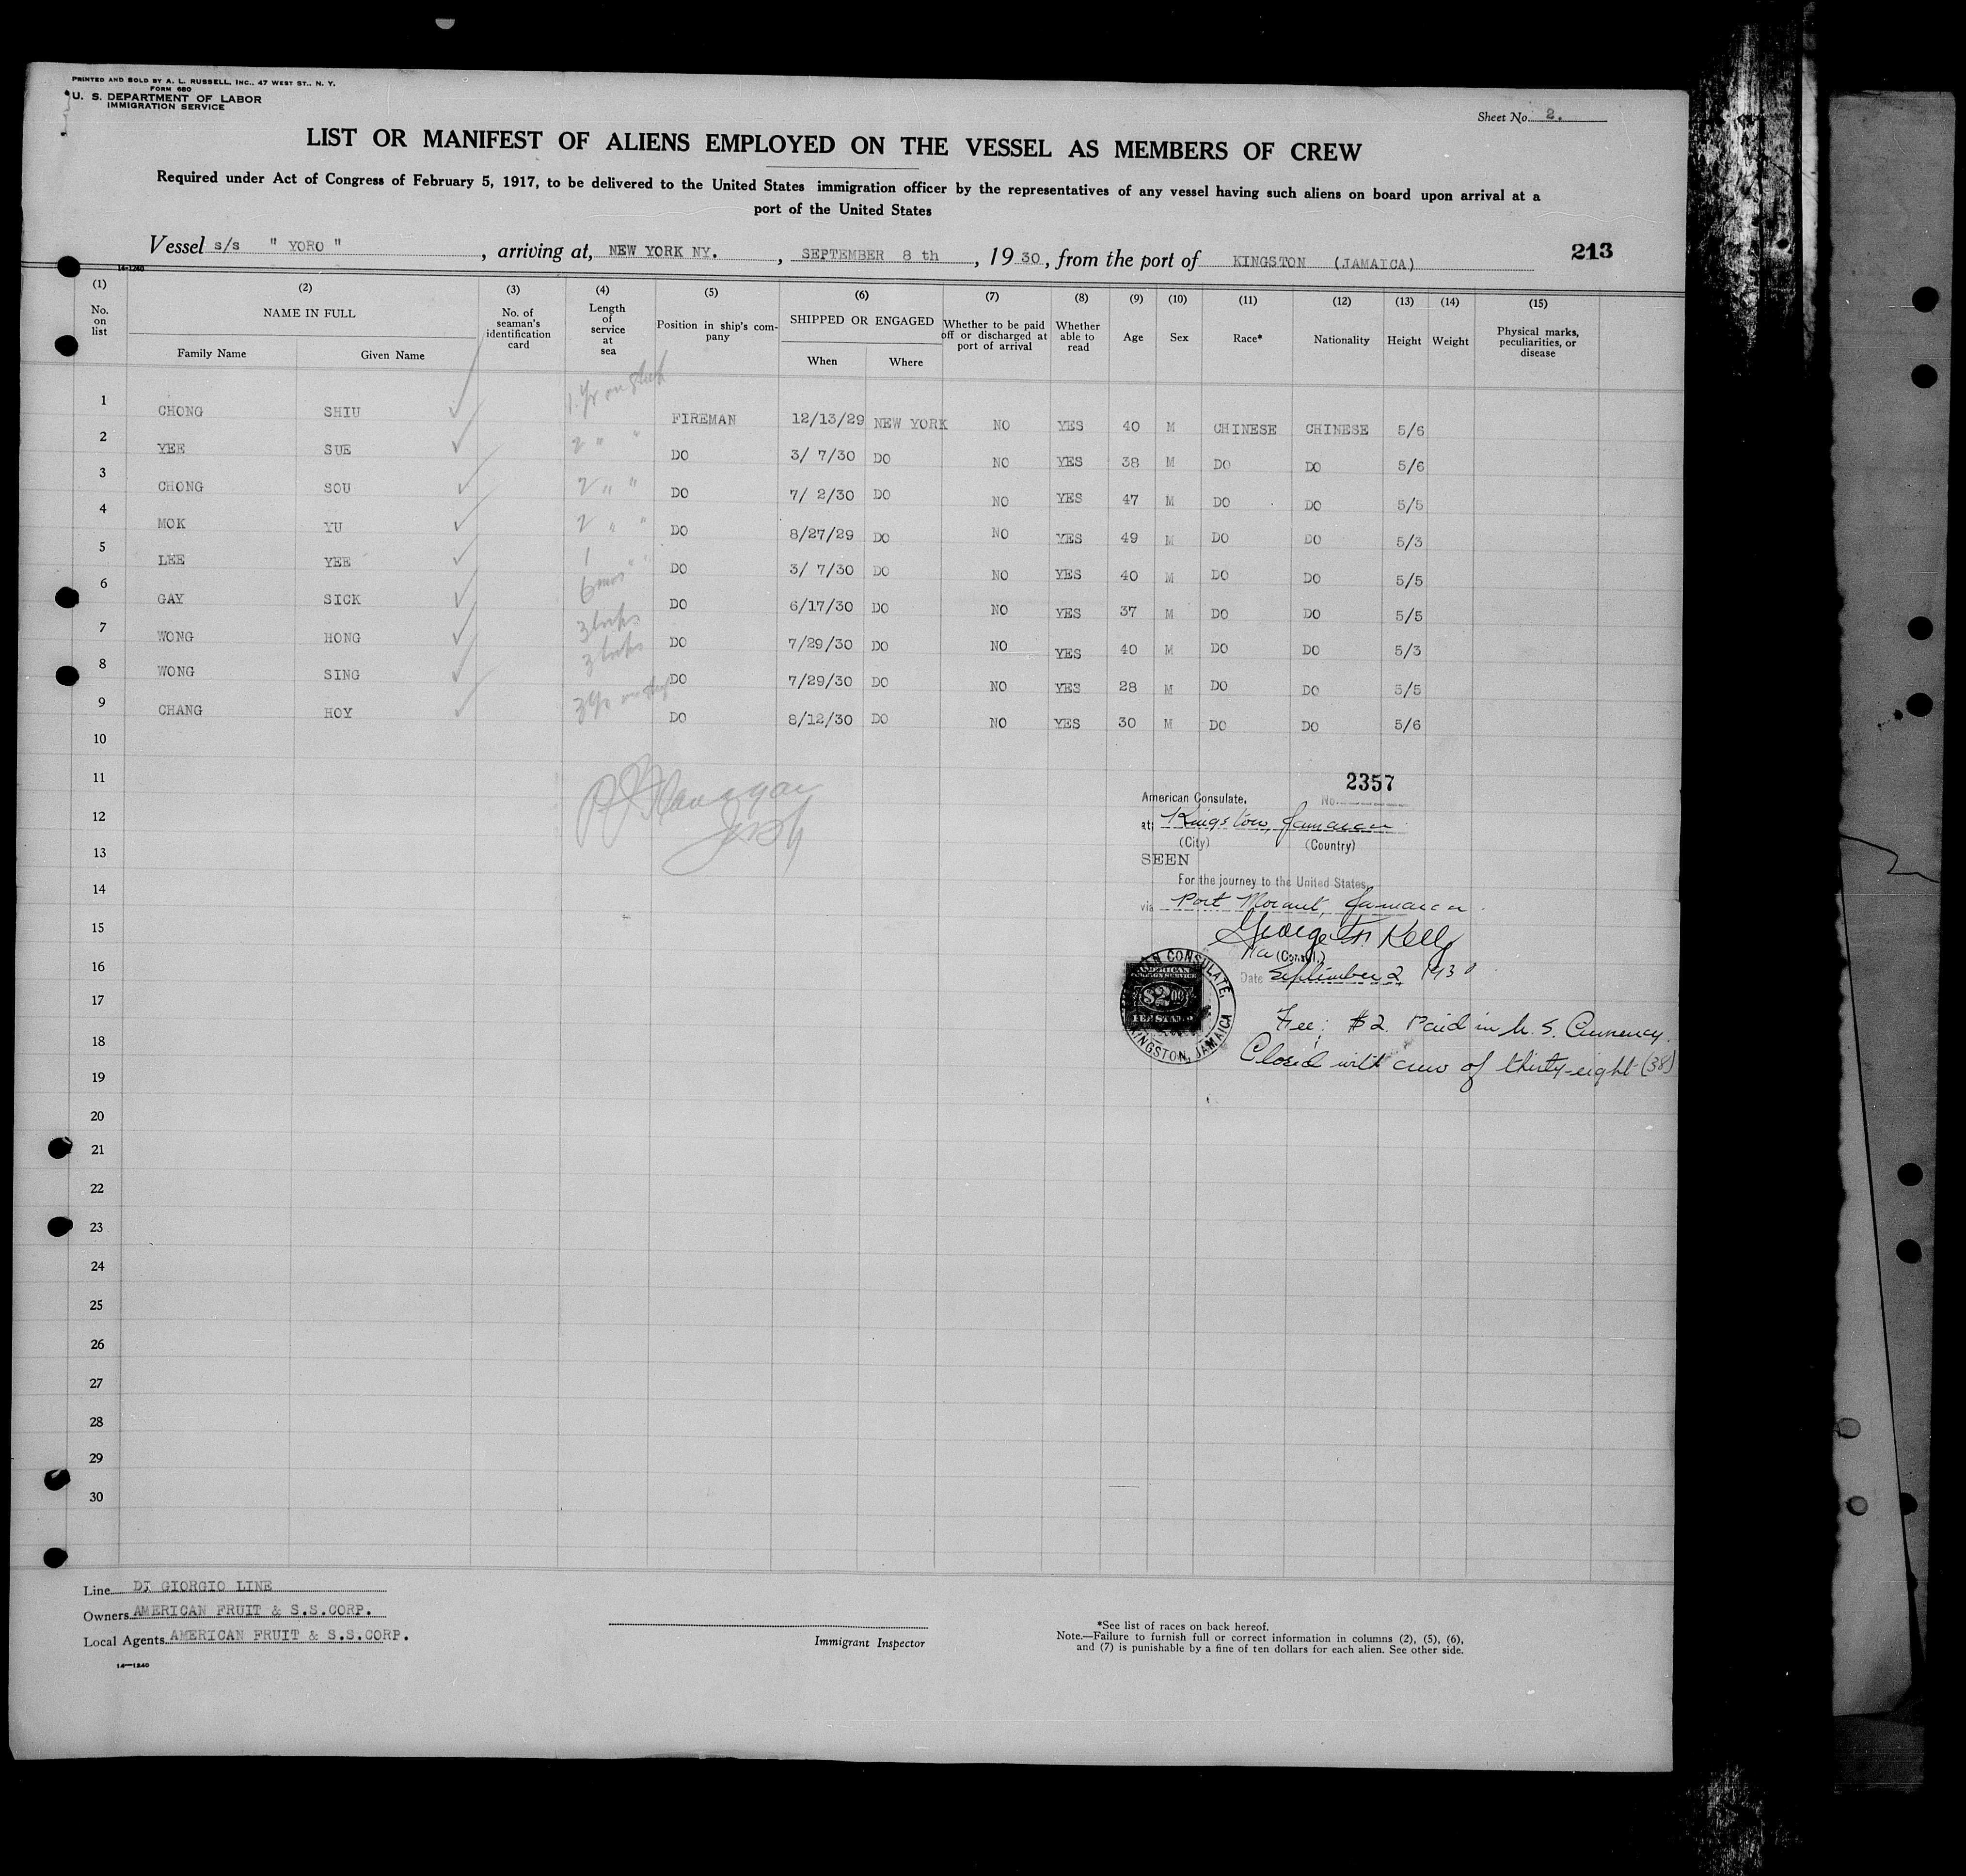 PRINTED AND SOLD BY A. L. RUSSELL, INC., 47 WEST ST., N. Y.
FORM 680
U. S. DEPARTMENT OF LABOR
IMMIGRATION SERVICE
Sheet No. 2.
LIST OR MANIFEST OF ALIENS EMPLOYED ON THE VESSEL AS MEMBERS OF CREW
Required under Act of Congress of February 5, 1917, to be delivered to the United States immigration officer by the representatives of any vessel having such aliens on board upon arrival at a
port of the United States
Vessel s/s " YORO ", arriving at, NEW YORK NY., SEPTEMBER 8 th, 1930, from the port of KINGSTON (JAMAICA) 213
14-1240
(1) No. on list (2) NAME IN FULL Family Name Given Name (3) No. of seaman's identification card (4) Length of service at sea (5) Position in ship's company (6) SHIPPED OR ENGAGED When Where (7) Whether to be paid off or discharged at port of arrival (8) Whether able to read (9) Age (10) Sex (11) Race* (12) Nationality (13) Height (14) Weight (15) Physical marks, peculiarities, or disease
1 CHONG SHIU 1 Yr on FIREMAN 12/13/29 NEW YORK NO YES 40 M CHINESE CHINESE 5/6
2 YEE SUE 2 " " DO 3/ 7/30 DO NO YES 38 M DO DO 5/6
3 CHONG SOU 2 " " DO 7/ 2/30 DO NO YES 47 M DO DO 5/5
4 MOK YU 2 " " DO 8/27/29 DO NO YES 49 M DO DO 5/3
5 LEE YEE 1 " " DO 3/ 7/30 DO NO YES 40 M DO DO 5/5
6 GAY SICK 6 mos DO 6/17/30 DO NO YES 37 M DO DO 5/5
7 WONG HONG 3 DO 7/29/30 DO NO YES 40 M DO DO 5/3
8 WONG SING 3 DO 7/29/30 DO NO YES 28 M DO DO 5/5
9 CHANG HOY 3 Yr on DO 8/12/30 DO NO YES 30 M DO DO 5/6
10
11
12
13
14
15
16
17
18
19
20
21
22
23
24
25
26
27
28
29
30
2357
American Consulate, No.
at Kingston, Jamaica
(City) (Country)
SEEN
For the journey to the United States,
via Port Morant, Jamaica.
George Kelly
(Consul.)
Date September 2 1930
AMERICAN CONSULATE, KINGSTON, JAMAICA
AMERICAN
FOREIGN SERVICE
$2.00
FEE STAMP
Fee: $2. Paid in U. S. Currency.
Closed with crew of thirty-eight (38)
Line DI GIORGIO LINE
Owners AMERICAN FRUIT & S.S.CORP.
Local Agents AMERICAN FRUIT & S.S.CORP.
14-1240
Immigrant Inspector
*See list of races on back hereof.
Note.—Failure to furnish full or correct information in columns (2), (5), (6),
and (7) is punishable by a fine of ten dollars for each alien. See other side.